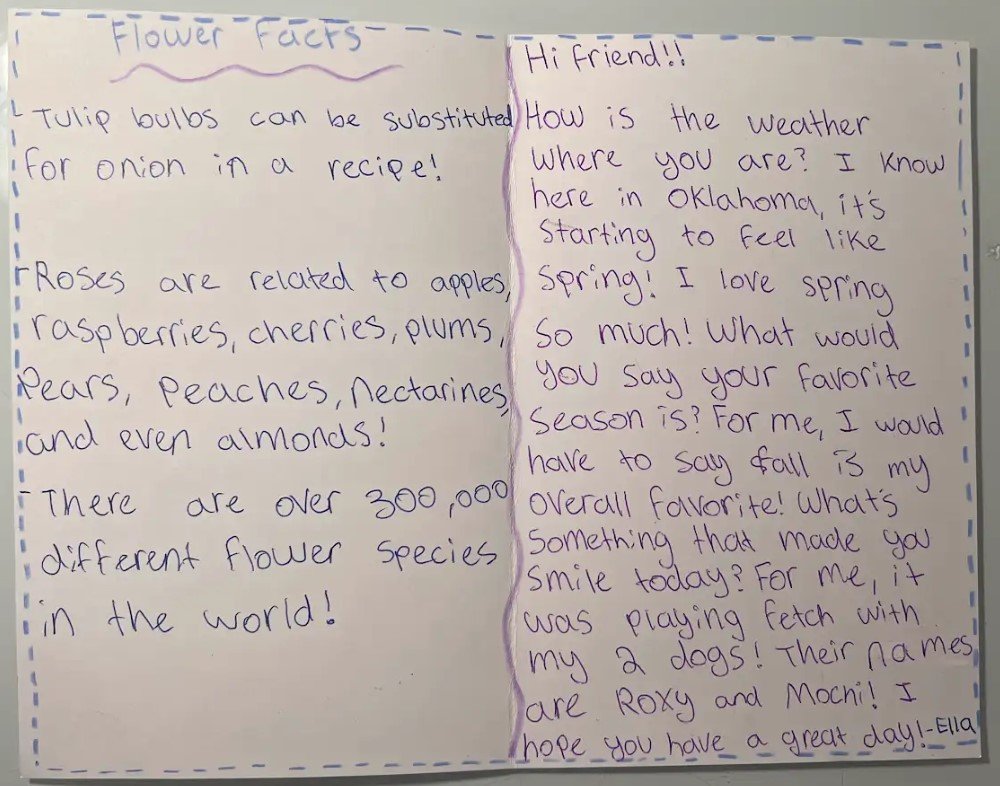 Flower Facts
- Tulip bulbs can be substituted
for onion in a recipe!
- Roses are related to apples,
raspberries, cherries, plums,
Pears, peaches, nectarines,
and even almonds!
- There are over 300,000
different flower species
in the world!
Hi friend!!
How is the weather
where you are? I know
here in Oklahoma, it's
starting to feel like
spring! I love spring
so much! What would
you say your favorite
season is? For me, I would
have to say fall is my
overall favorite! What's
something that made you
smile today? For me, it
was playing fetch with
my 2 dogs! Their names
are Roxy and Mochi! I
hope you have a great day! -Ella